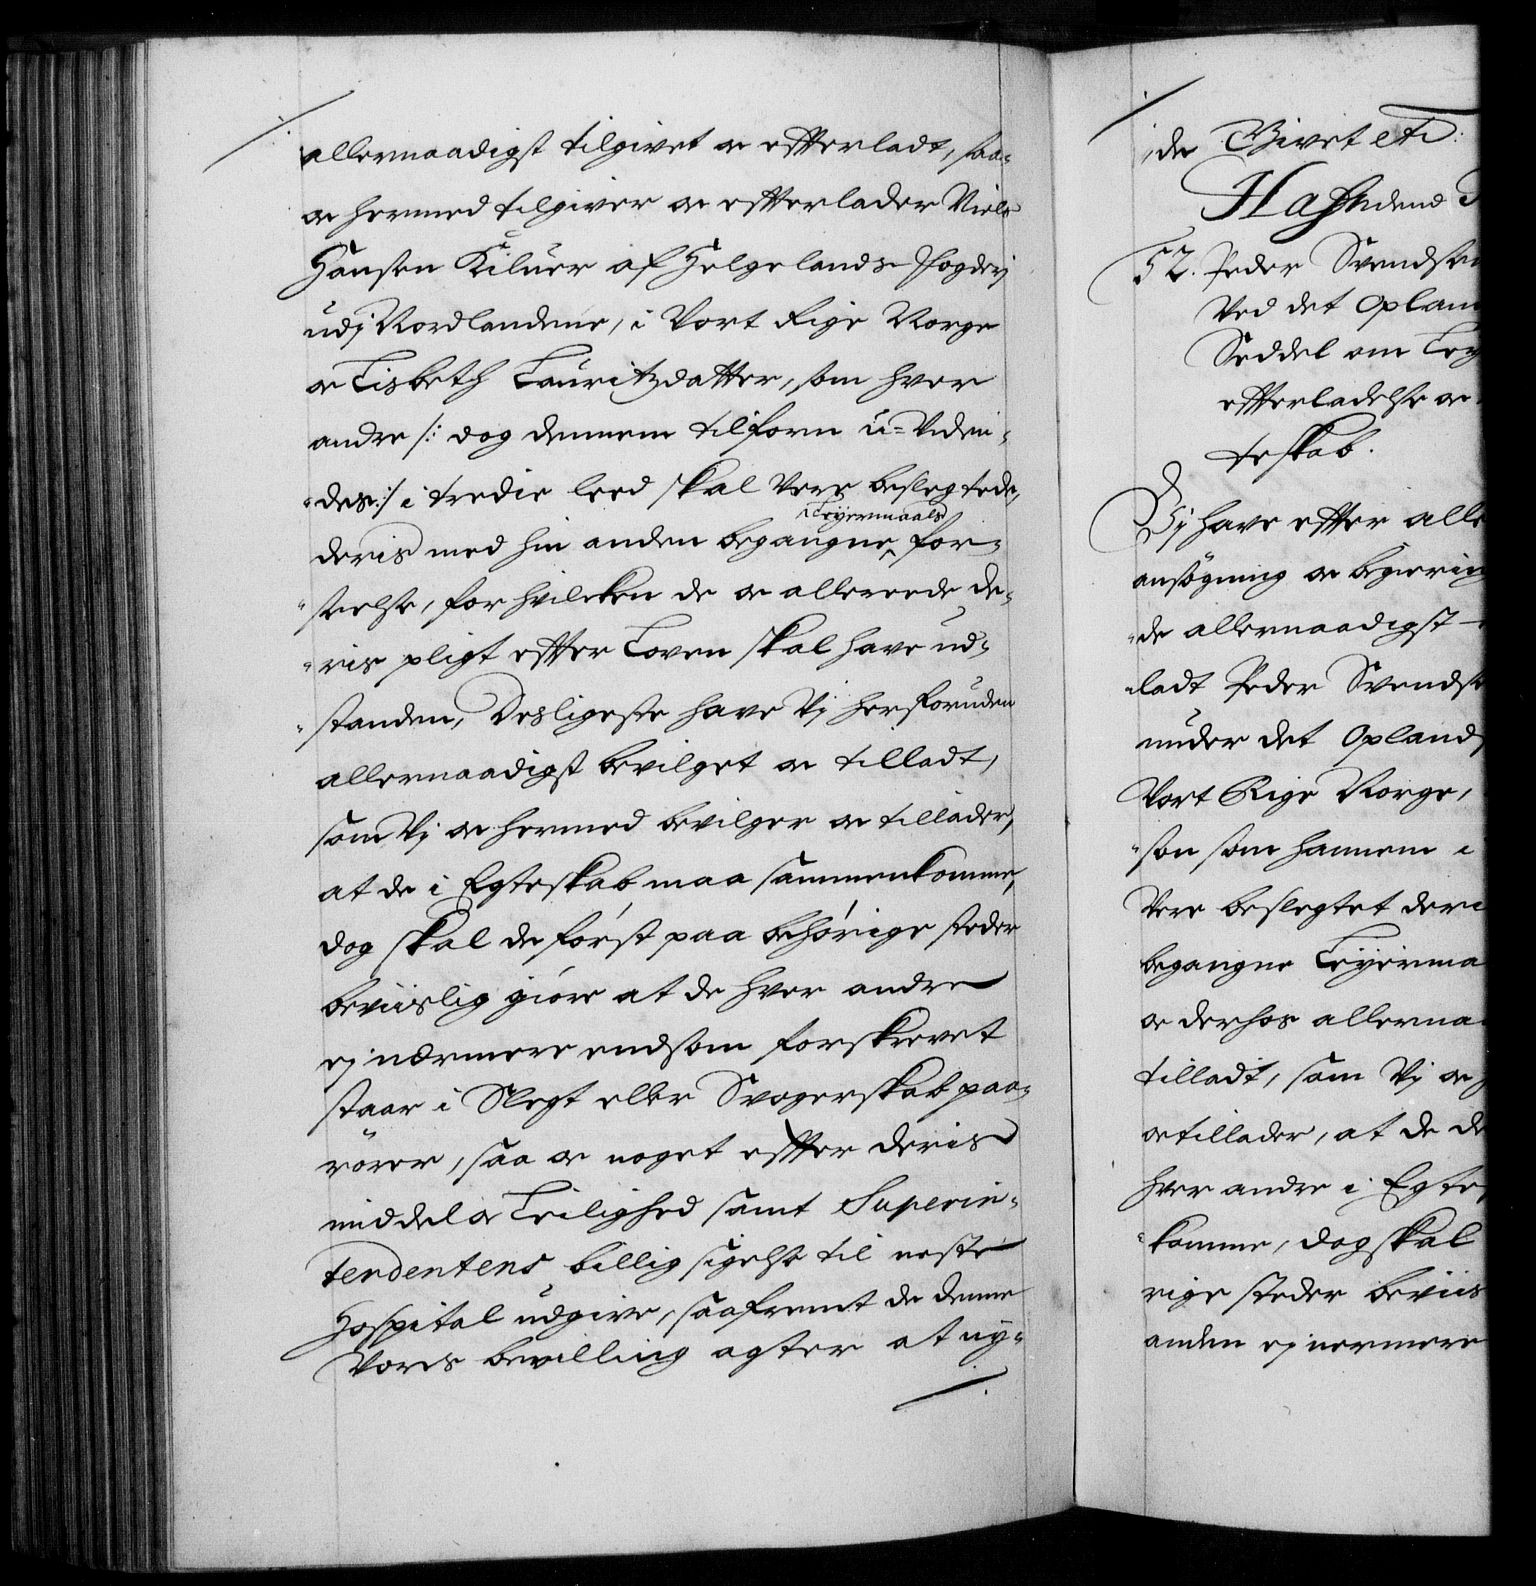 allernaadigst tilgivet oc efterladt, saa-
oc hermed tilgiver oc efterlader Niels
Hansen Kilüer af Helgelands Fogderj
udj Nordlandene, i Vort Rige Norge
oc Lisbeth Lauritzdatter, som hver
andre /: dog dennem tilforn u-viden-
des :/ i tredie leed skal vere beslegtede,
Leyermaals
deris med hin anden begangne for-
seelse, for hvilcken de oc allereede de-
ris pligt effter Loven skal have ud-
standen, Desligeste have Vj herforuden
allernaadigst bevilget oc tilladt,
som Vj oc hermed bevilger oc tillader,
at de i Egteskab maa sammenkomme,
dog skal de først paa behørige steder
beviislig giøre at de hver andre
ej nærmere end som forskrevet
staar i Slegt eller Svogerskab paa-
rörer, saa oc noget effter deris
middel oc Leilighed samt Superin-
tendentens billig sigelse til neste
Hospital udgive, saafremt de denne
Voris bevilling agter at ny-
de Givet etc:
Hafn dend
52. Peder Svends
Ved det Oplan
Seddel om Ley
effterladelse oc
teskab.
Vj have effter alle
ansøgning oc begiering
de allernaadigst
ladt Peder Svends
under det Oplands
Vort Rige Norge,
som hannem i
Vere beslegtet deri
begangne Leyerma
oc derhos allerna
tilladt, som Vj oc
oc tillader, at de de
hver andre i Egte
komme, dog skal
rige steder beviis
anden ej nermere